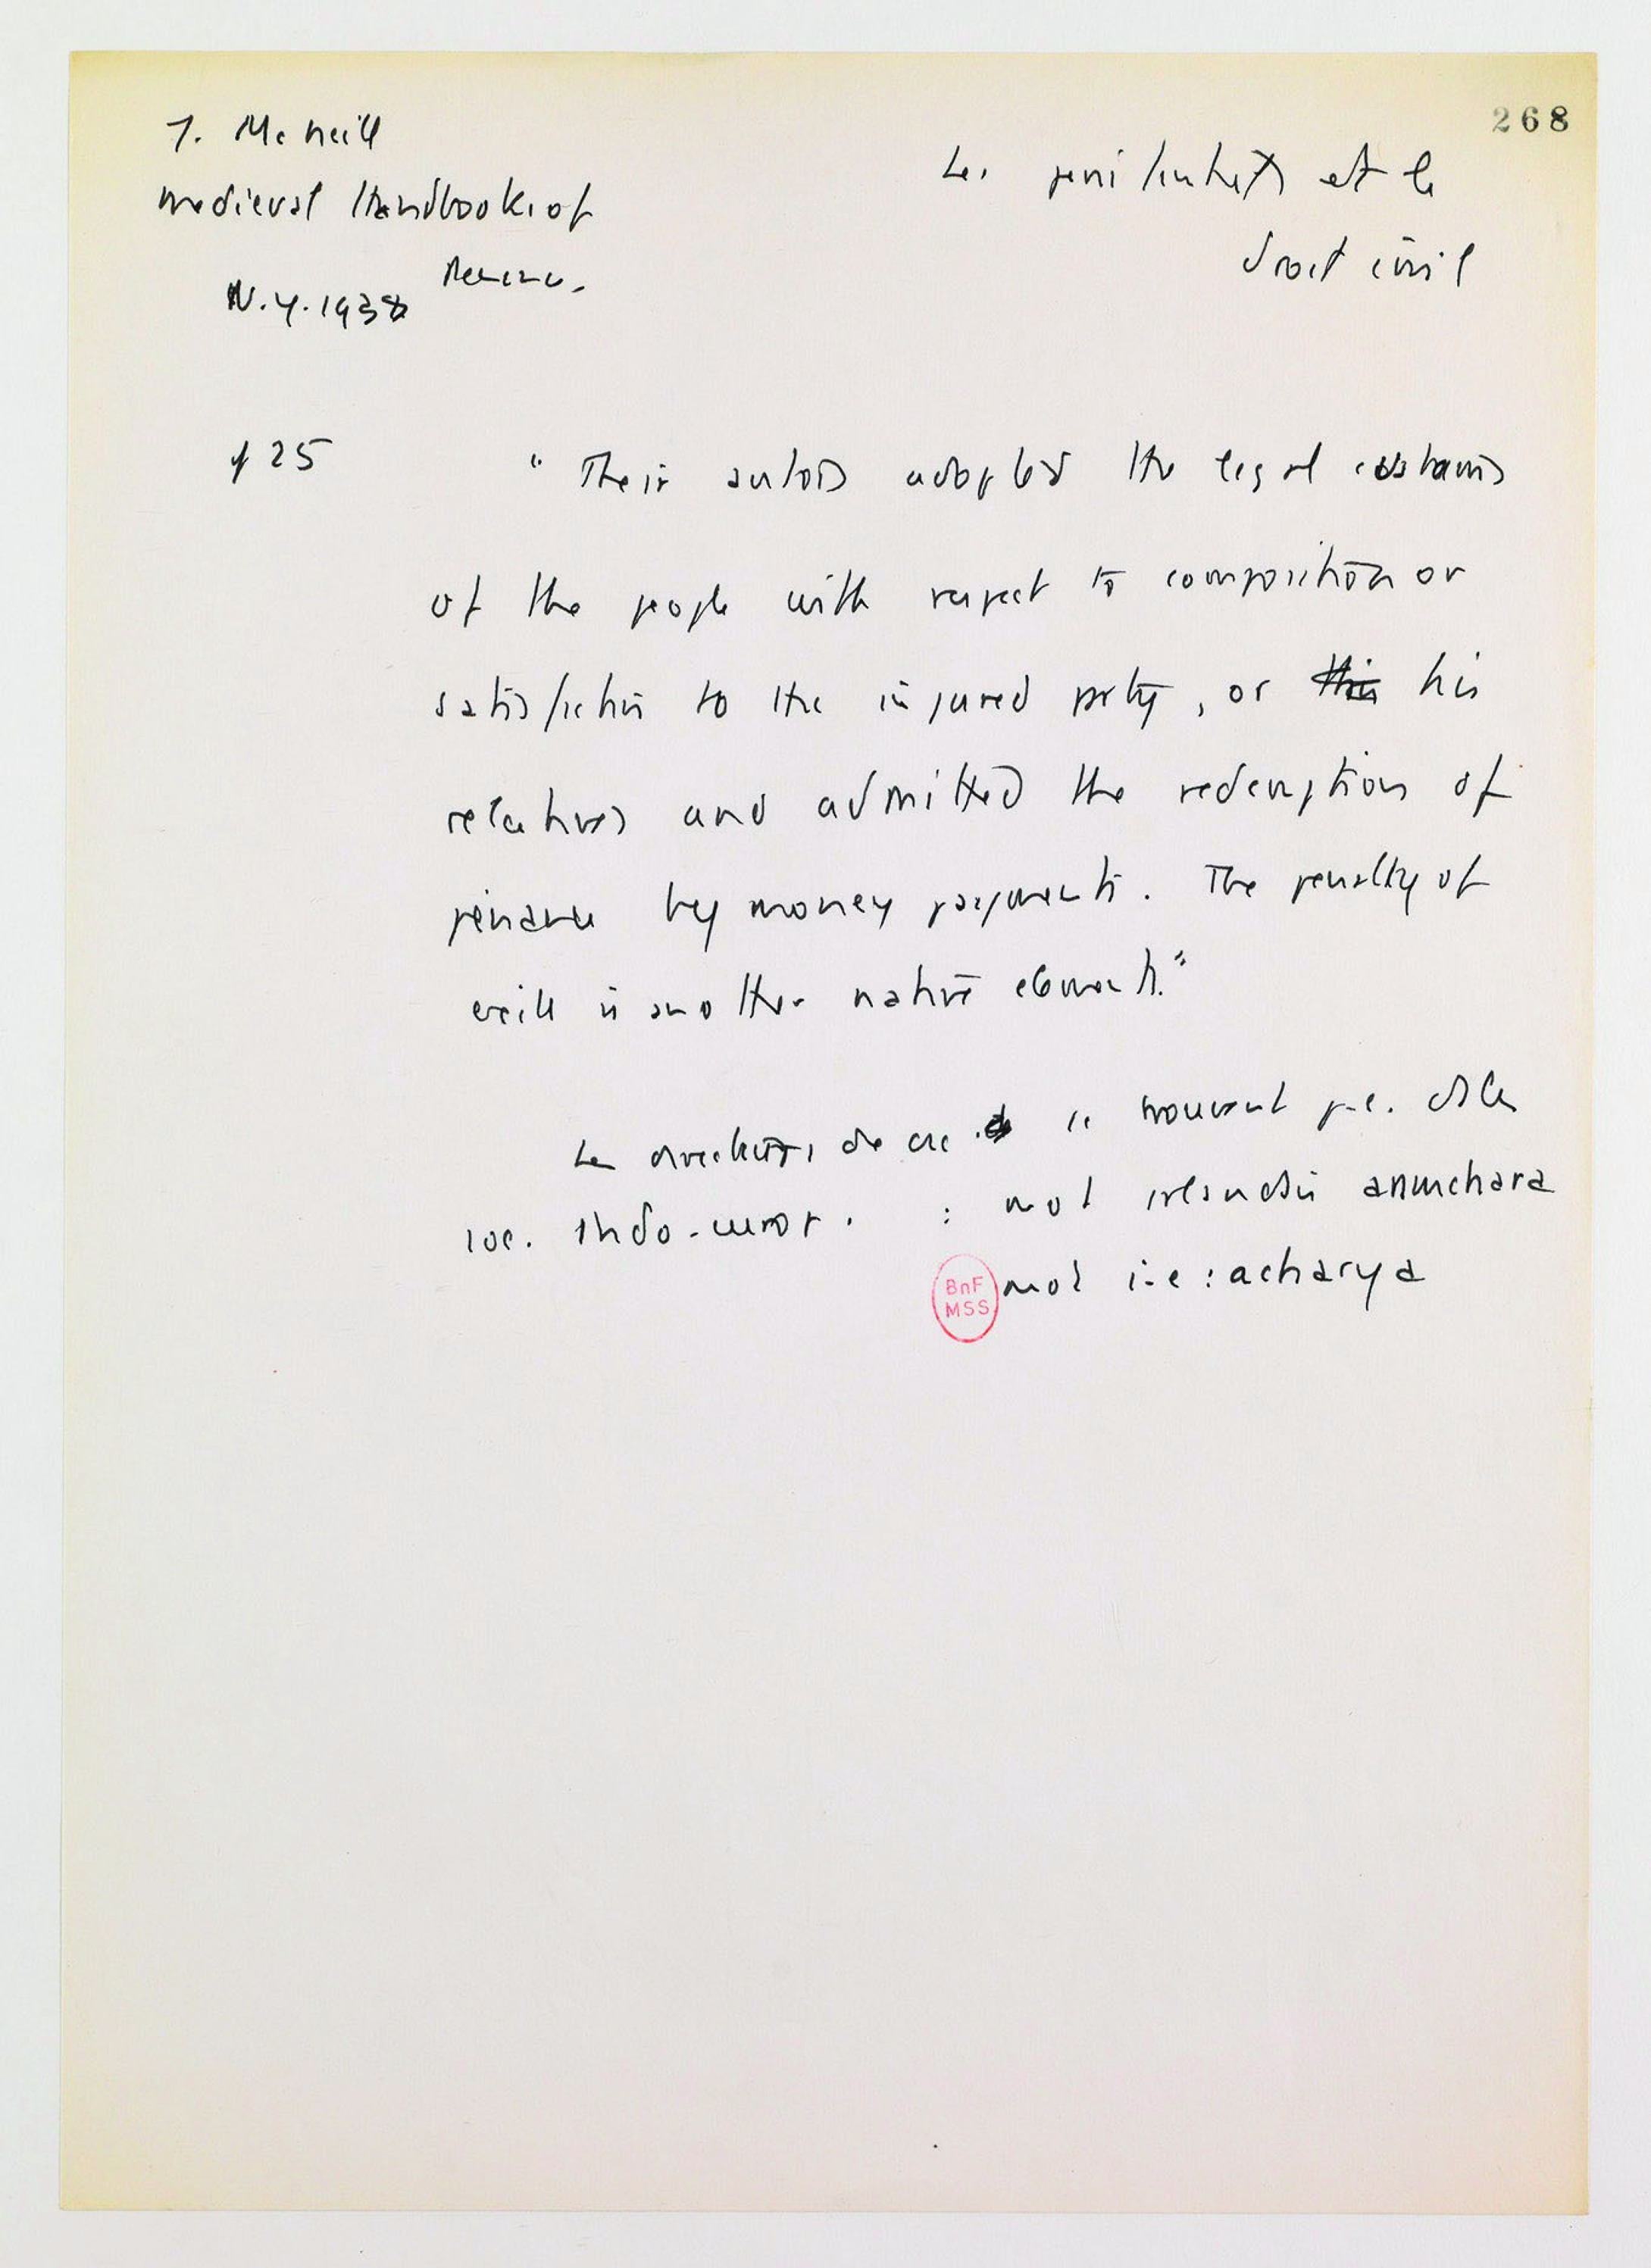 268
J. Mc Neill
Medieval Handbooks of
Penance.
N.Y. 1938
Les pénitentiels et le
droit civil
p 25
" Their autors adopted the legal customs
of the people with respect to composition or
satisfaction to the injured party, or this his
relatives and admitted the redemption of
penance by money payments. The penalty of
exile is another native element."
Les directeurs de csc se trouvent p.e. ds les
soc. Indo-europ. : mot irlandais anmchara
mot i-e : acharya
BnF
MSS